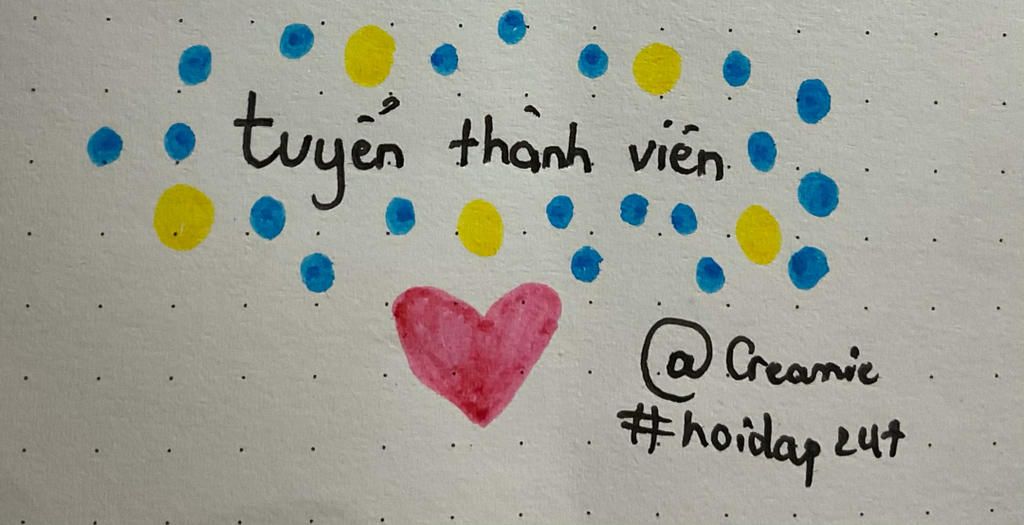 tuyển thành viên
@Creamie
#hoidap247